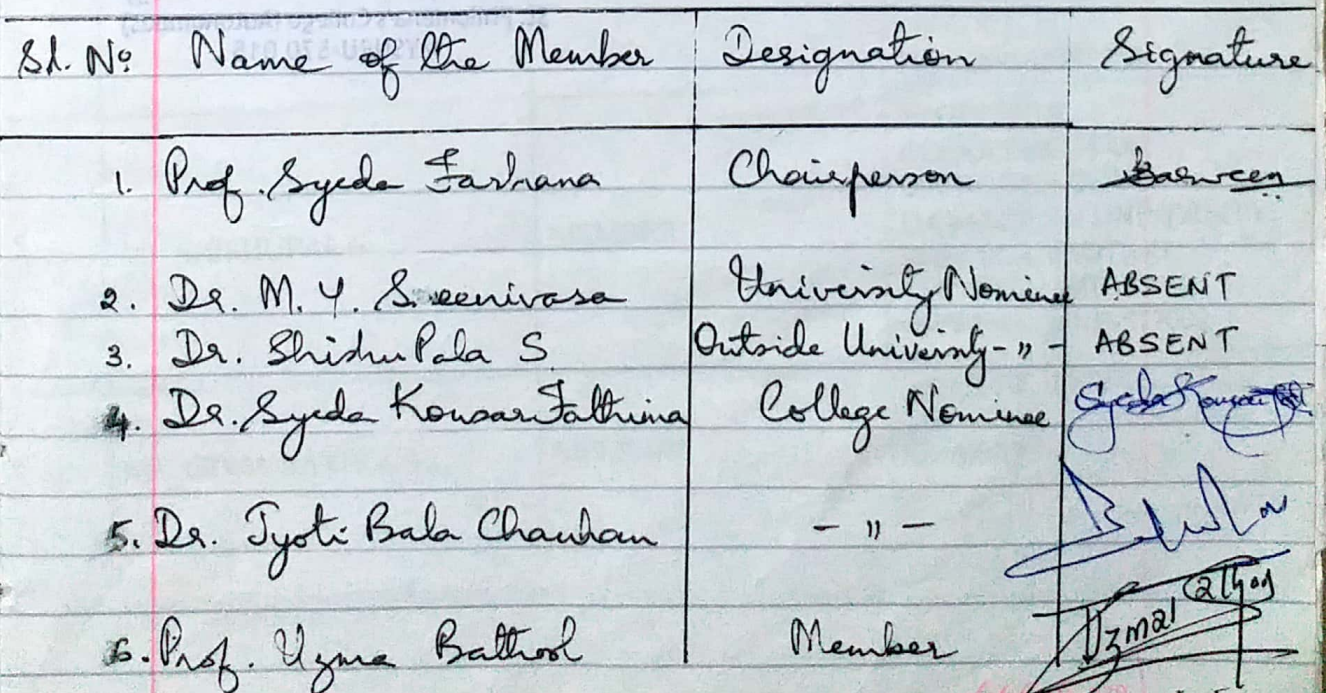 Sl. No Name of the Member Designation Signature
1. Prof. Syeda Farhana Chairperson
2. Dr. M. Y. Sreenivasa University Nominee ABSENT
3. Dr. Shishu Pala S. Outside University - " - ABSENT
4. Dr. Syeda Kousar Fathima College Nominee Syeda Kousar
5. Dr. Jyoti Bala Chauhan - " -
6. Prof. Uzma Bathool Member Uzma